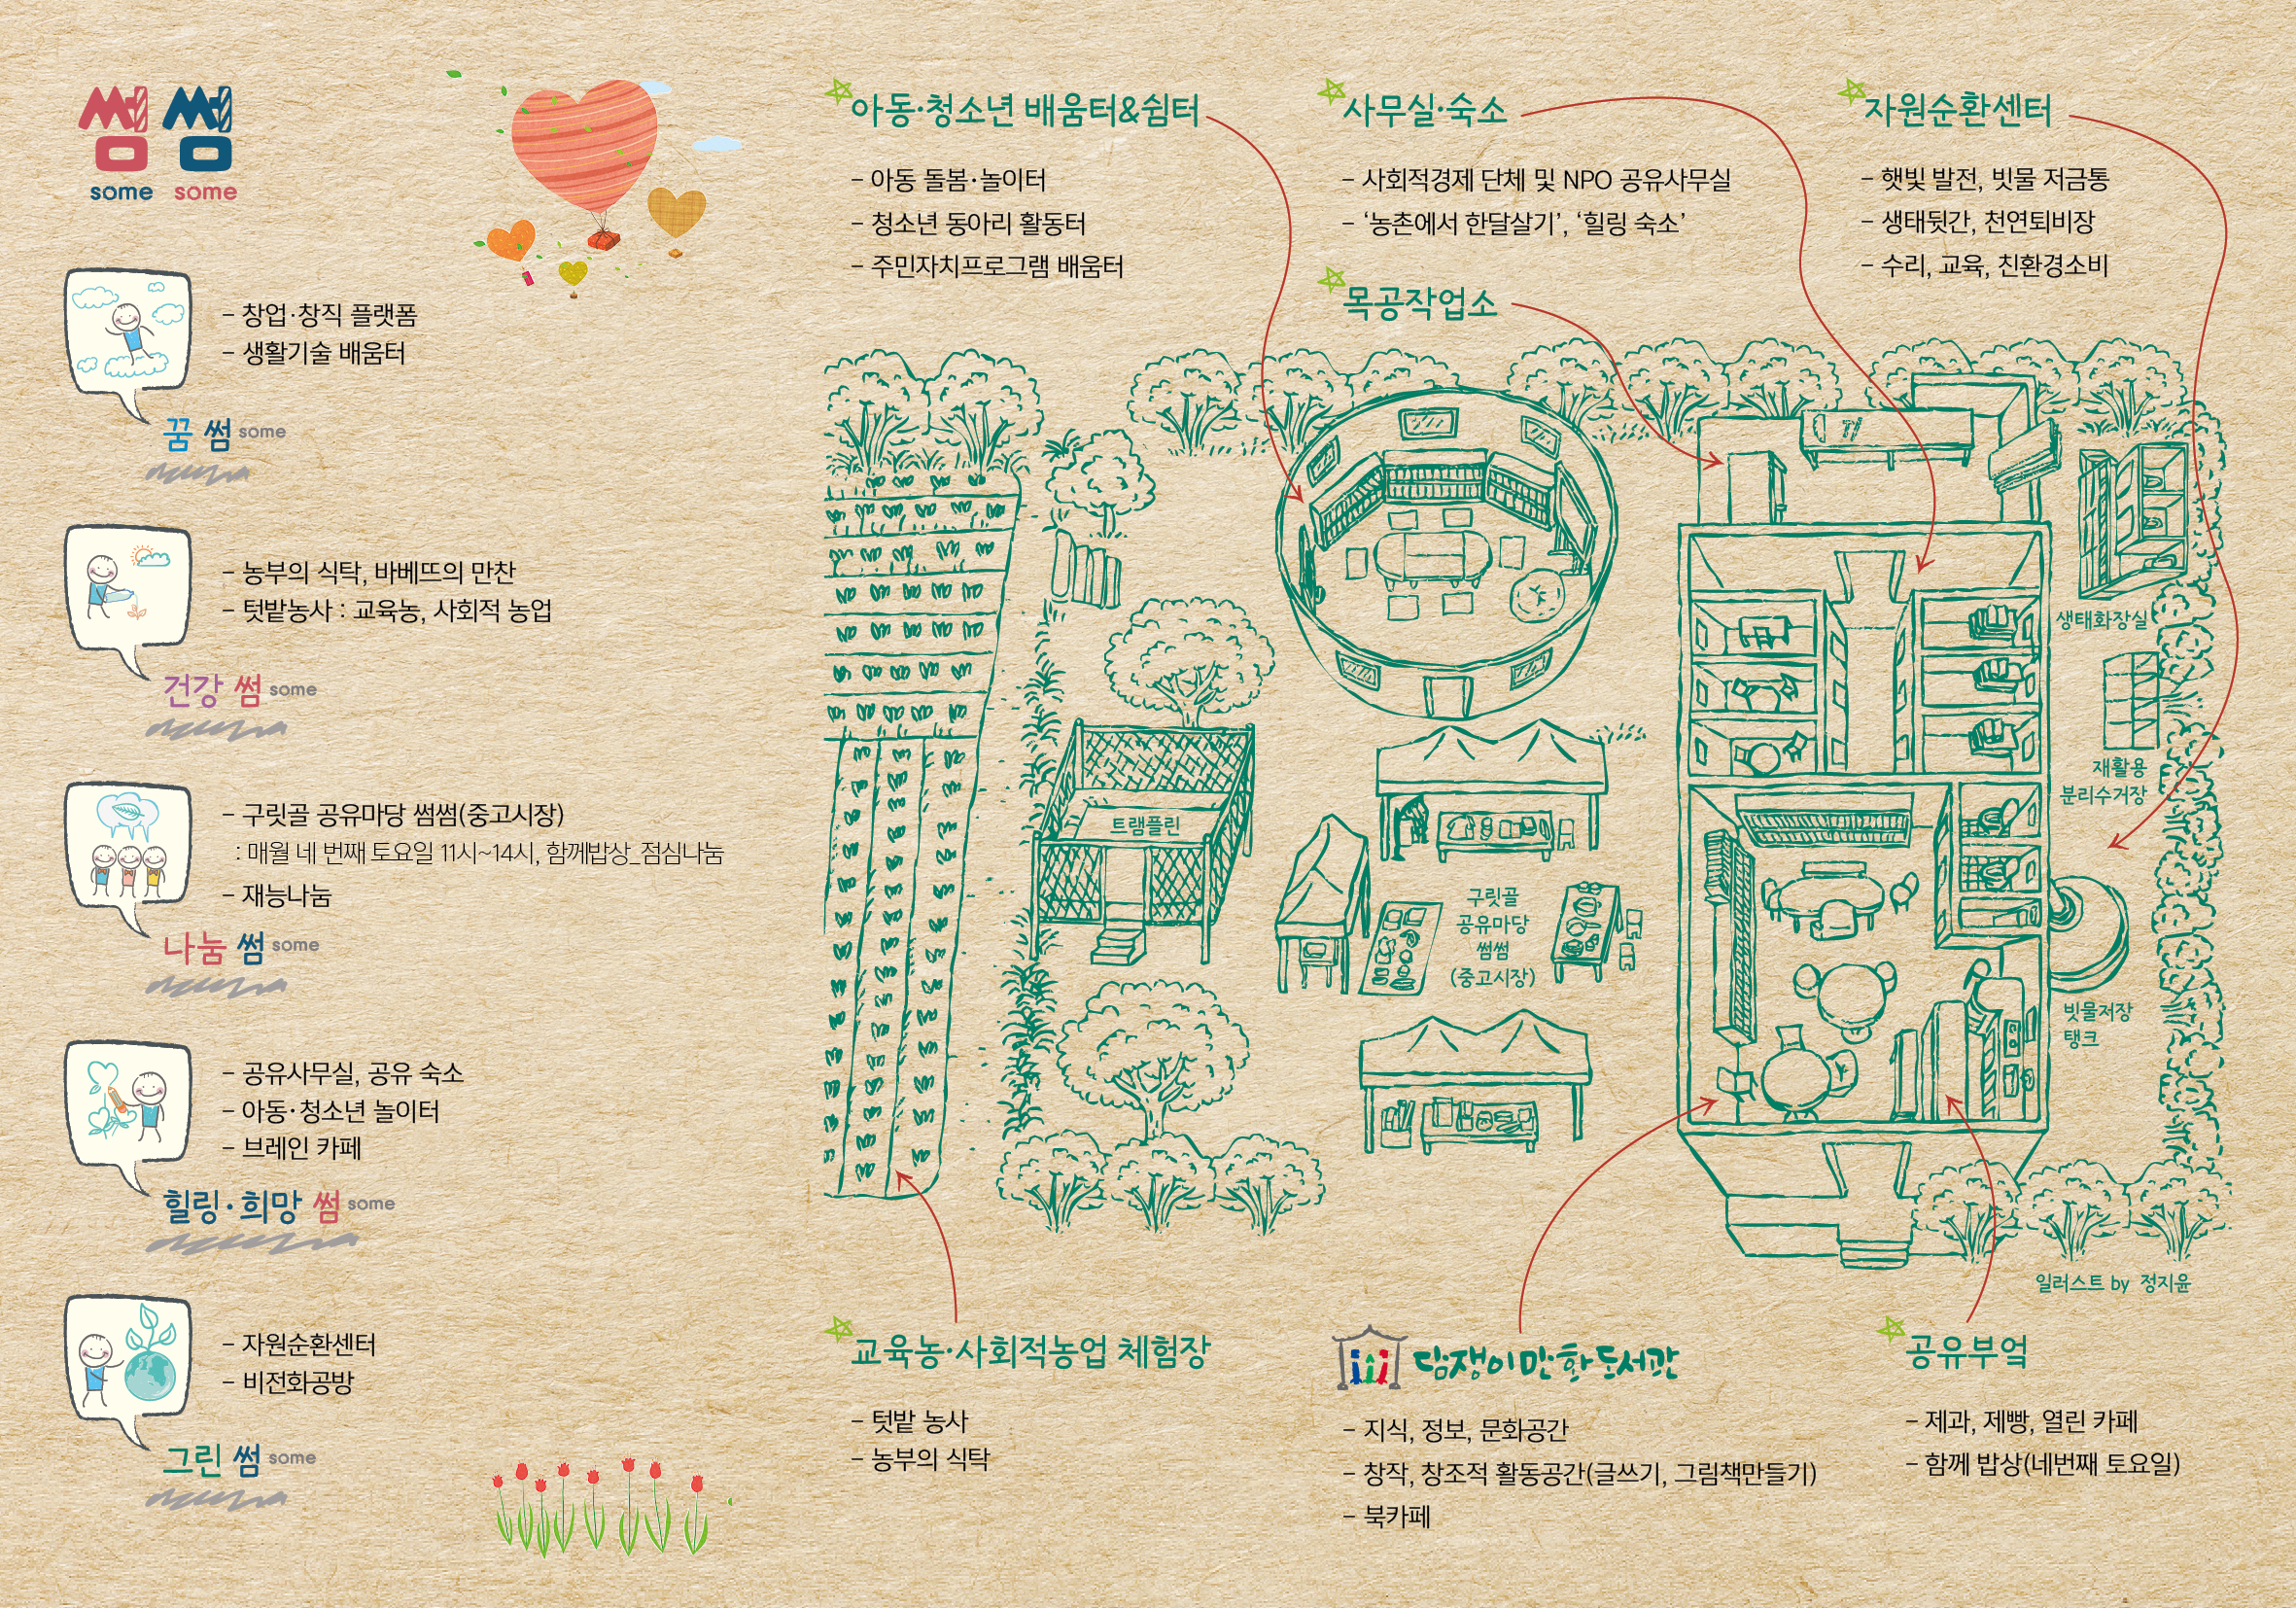 썸 썸
some some
- 창업·창직 플랫폼
- 생활기술 배움터
꿈 썸 some
- 농부의 식탁, 바베뜨의 만찬
- 텃밭농사 : 교육농, 사회적 농업
건강 썸 some
- 구릿골 공유마당 썸썸(중고시장)
: 매월 네 번째 토요일 11시~14시, 함께밥상_점심나눔
- 재능나눔
나눔 썸 some
- 공유사무실, 공유 숙소
- 아동·청소년 놀이터
- 브레인 카페
힐링·희망 썸 some
- 자원순환센터
- 비전화공방
그린 썸 some
아동·청소년 배움터&쉼터
- 아동 돌봄·놀이터
- 청소년 동아리 활동터
- 주민자치프로그램 배움터
사무실·숙소
- 사회적경제 단체 및 NPO 공유사무실
- ‘농촌에서 한달살기’, ‘힐링 숙소’
목공작업소
자원순환센터
- 햇빛 발전, 빗물 저금통
- 생태뒷간, 천연퇴비장
- 수리, 교육, 친환경소비
생태화장실
재활용
분리수거장
트램플린
구릿골
공유마당
썸썸
(중고시장)
빗물저장
탱크
일러스트 by 정지윤
교육농·사회적농업 체험장
- 텃밭 농사
- 농부의 식탁
담쟁이만화도서관
- 지식, 정보, 문화공간
- 창작, 창조적 활동공간(글쓰기, 그림책만들기)
- 북카페
공유부엌
- 제과, 제빵, 열린 카페
- 함께 밥상(네번째 토요일)